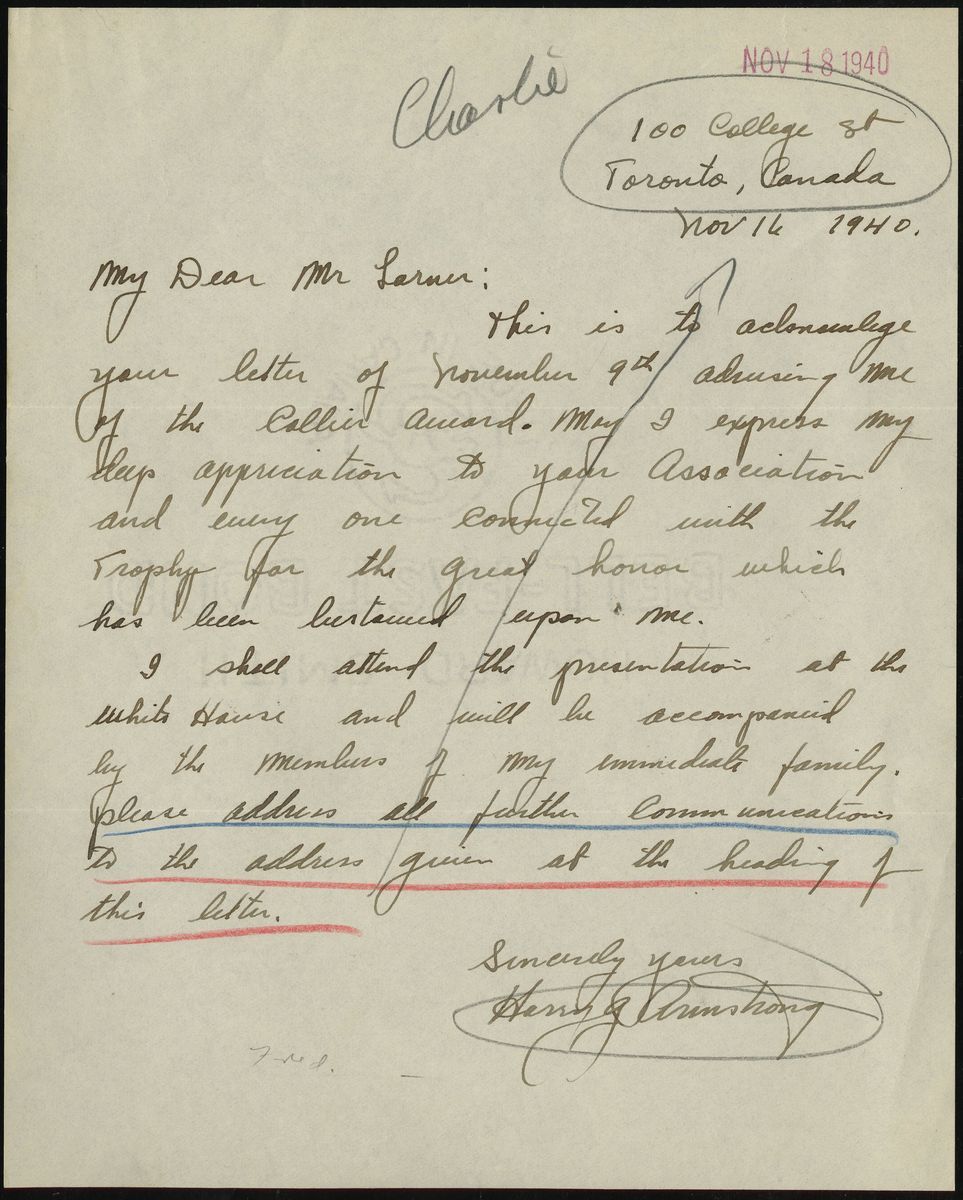 NOV 18 1940
Charlie
100 College St
Toronto, Canada
Nov 16 1940.
My Dear Mr Larner:
This is to acknowlege
your letter of November 9th advising me
of the Collier Award. May I express my
deep appriciation to your Association
and every one connected with the
Trophy for the great honor which
has been bestowed upon me.
I shall attend the presentation at the
White House and will be accompanied
by the members of my immediate family.
please address all further communications
to the address given at the heading of
this letter.
Sincerely yours
Harry G Armstrong
Fred.